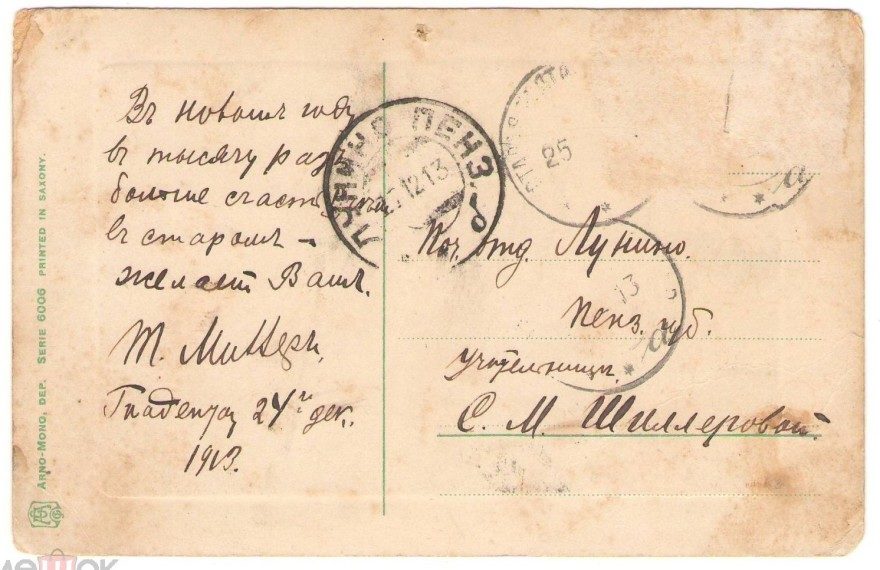 Въ новомъ году
въ тысячу разъ
больше счастія чѣмъ
въ старомъ –
желаетъ Вамъ
Т. Миллеръ
24го дек.
1913.
Поч. отд. Лунино.
Пенз. губ.
учительницѣ
С. М. Шиллеровой
ЛУНИНО ПЕНЗ.
12 13
25
а
13
а
ARNO-MONO, DEP. SERIE 6006 PRINTED IN SAXONY.